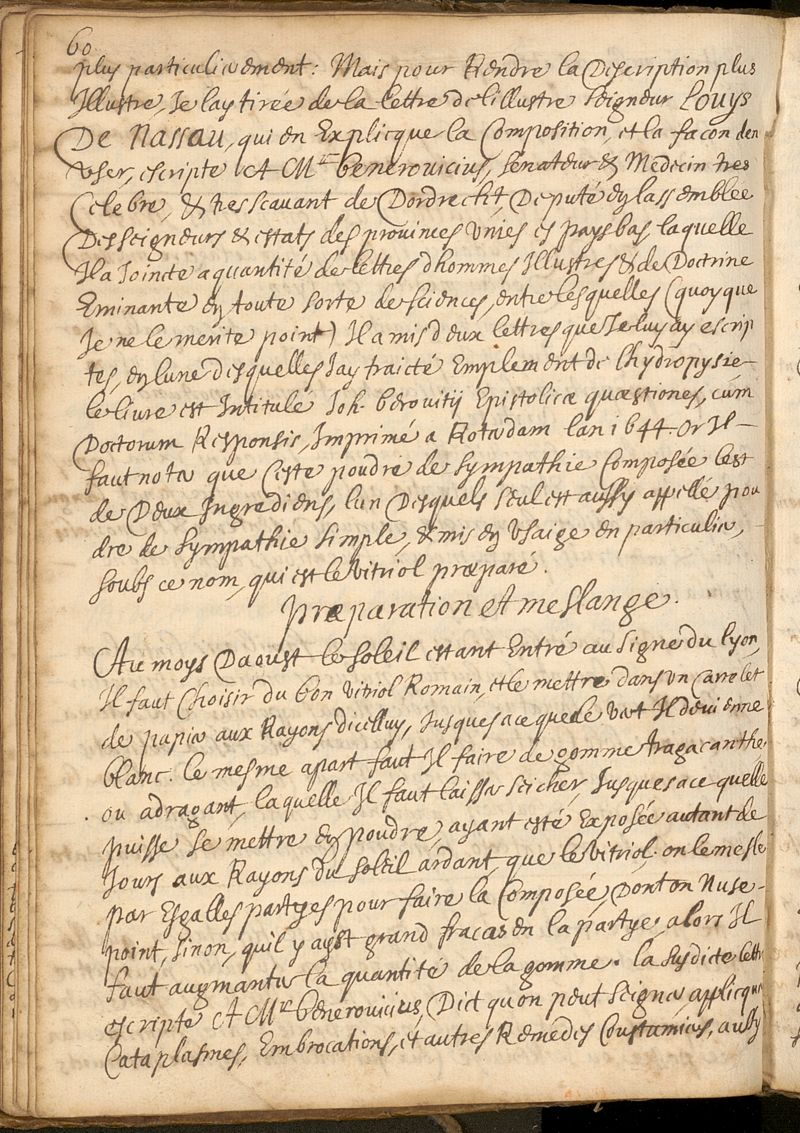 60
plus particulierement: Mais pour Rendre la Description plus
Illustre, Je lay tirée de la lettre de lillustre seigneur Louys
De Nassau, qui en Explicque la Composition, et la façon den
vser, escripte A Mr benerouicius, senateur & Medecin tres
Celebre, & tresscauant de Dordrecht, Deputé en lassemblée
Desseigneurs & estats des prouinces vnies es pays bas, laquelle
Il a Joincte a quantité de lettres dhommes Illustres & de Doctrine
Eminante en toute sorte de sciences, entre lesquelles (quoy que
Je ne le merite point) Il a mis deux lettres que Je luy ay escrip
tes, en lune desquelles Jay traicté Emplement de lhydropysie
le liure est Intitulé Joh. berouitij Epistolicæ quæstiones, cum
Doctorum Responsis, Imprimé a Rotrdam lan 1644. Or Il
faut noter que Ceste poudre de sympathie Composée lest
de Deux Ingrediens, lun Desquels seul est aussy appellé pou
dre de sympathie simple, & mis en vsaige en particulier,
soubs ce nom, qui est le vitriol præparé.
præparation et meslange.
Au moys Daoust le soleil estant Entré au signe du lyon,
Il faut Choisir du bon vitriol Romain, et le mettre dans vn Carrelet
de papier aux Rayons dicelluy, Jusques a ce que de vert Il deuienne
blanc. le mesme apart faut Il faire de gomme tragacanthe,
ou adragant, laquelle Il faut laisser seicher, Jusques a ce quelle
puisse se mettre en poudre ayant esté Exposée autant de
Jours aux Rayons du soleil ardant, que le vitriol. on le mesle
par Esgalles partyes pour faire la Composée, Dont on Nuse
point, sinon, quil y ayst grand fracas en la partye, alors Il
faut augmanter la quantité de la gomme. la susdicte lettre
escripte A Mr benerouicius, Dict quon peut seigner applicquer
Cataplasmes, Embrocations, et autres Remedes Coustumiers, aussy